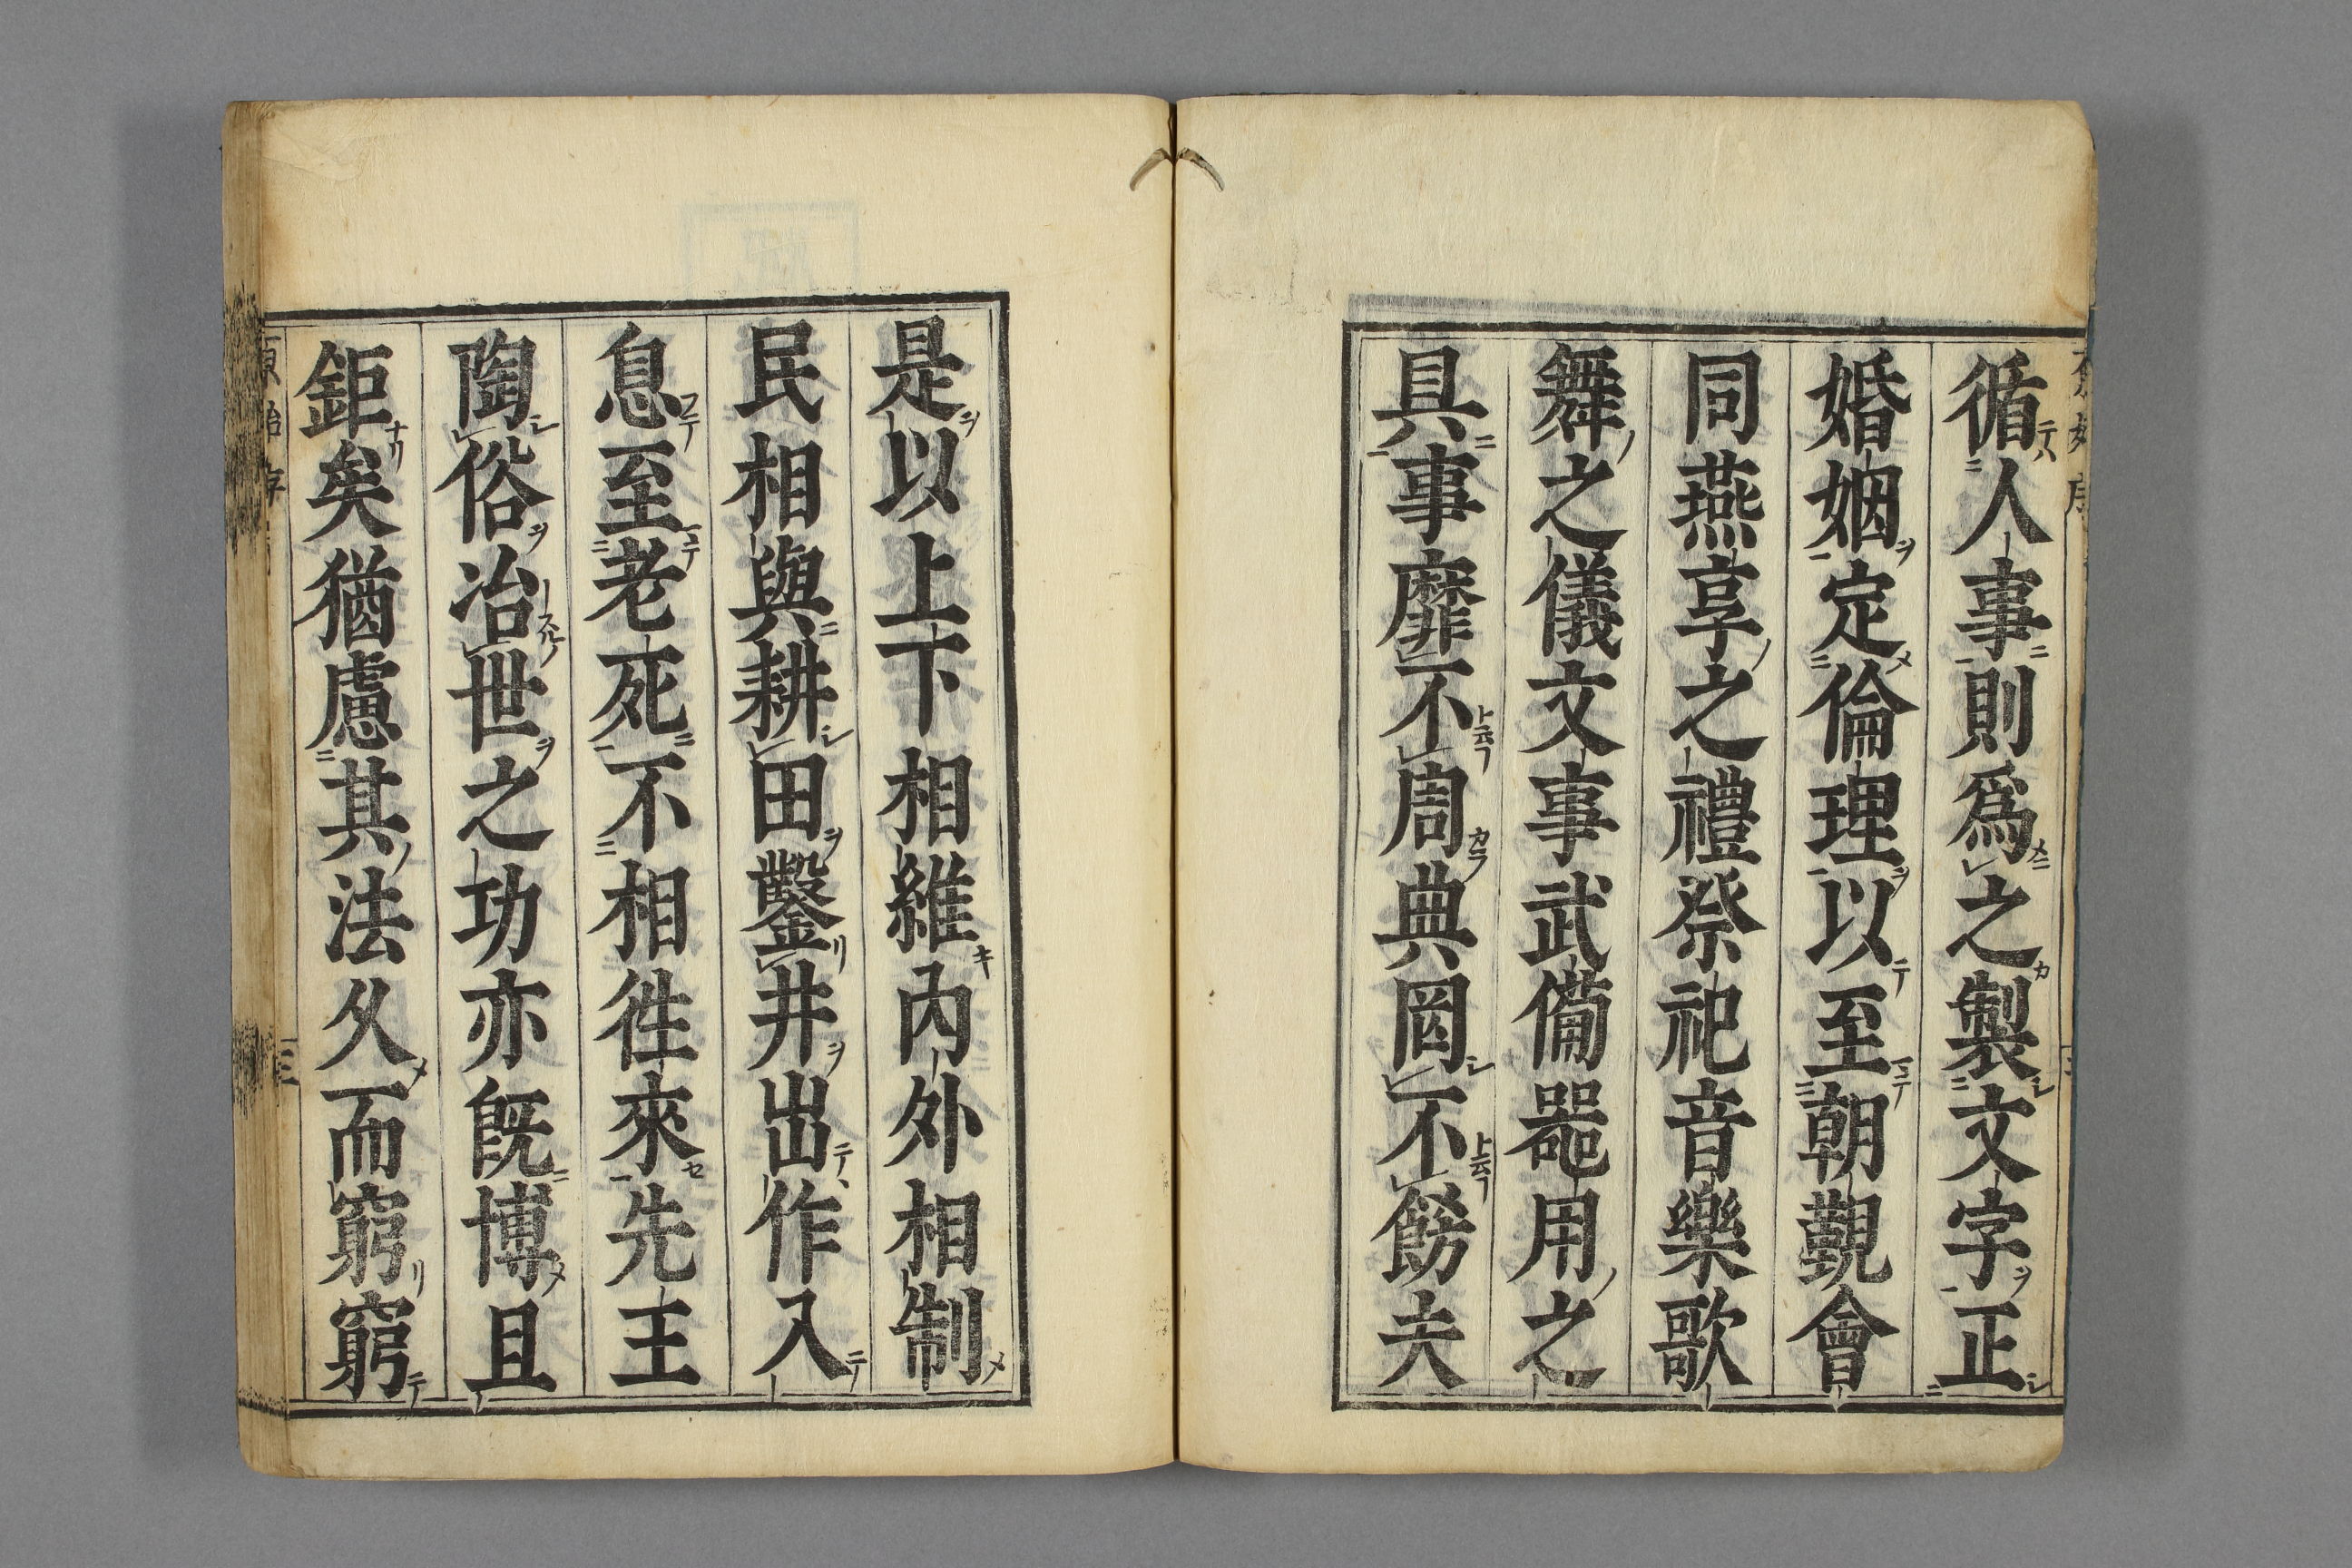 循人事則爲之製文字正
婚姻定倫理以至朝覲會
同燕享之禮祭祀音樂歌
舞之儀文事武備器用之
具事靡不周典罔不餝夫
是以上下相維內外相制
民相與耕田鑿井出作入
息至老死不相徃來先王
陶俗冶世之功亦旣博且
鉅矣猶慮其法久而窮窮